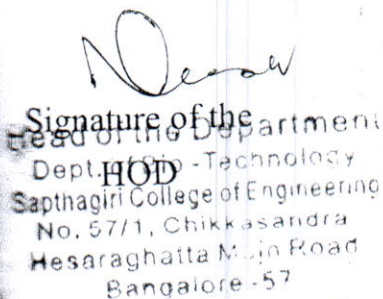 Signature of the
Head of the Department
HOD
Dept. of Bio-Technology
Sapthagiri College of Engineering
No. 57/1, Chikkasandra
Hesaraghatta Main Road
Bangalore -57